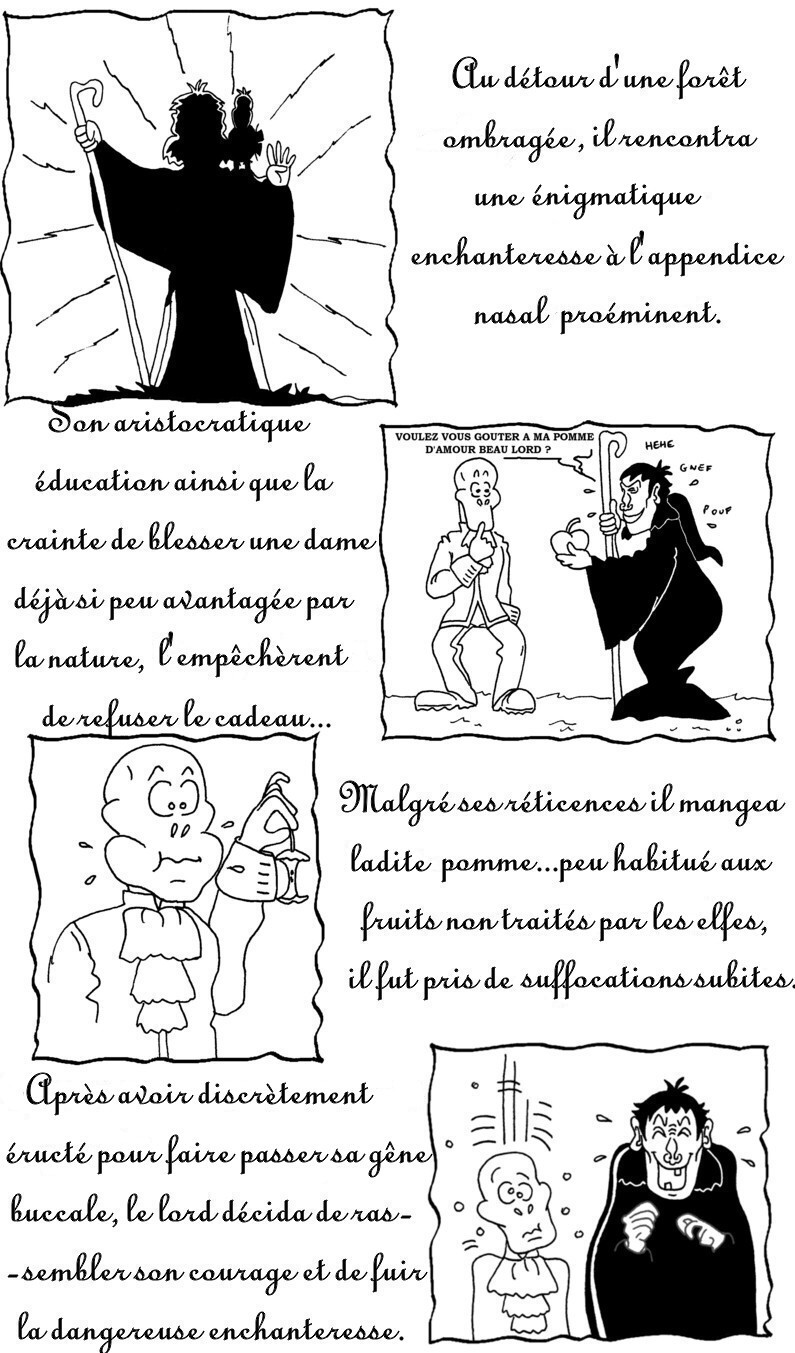 Au détour d'une forêt
ombragée, il rencontra
une énigmatique
enchanteresse à l'appendice
nasal proéminent.
Son aristocratique
éducation ainsi que la
crainte de blesser une dame
déjà si peu avantagée par
la nature, l'empêchèrent
de refuser le cadeau...
VOULEZ VOUS GOUTER A MA POMME
D'AMOUR BEAU LORD ?
HEHE
GNEF
POUF
Malgré ses réticences il mangea
ladite pomme...peu habitué aux
fruits non traités par les elfes,
il fut pris de suffocations subites.
Après avoir discrètement
éructé pour faire passer sa gêne
buccale, le lord décida de ras-
-sembler son courage et de fuir
la dangereuse enchanteresse.